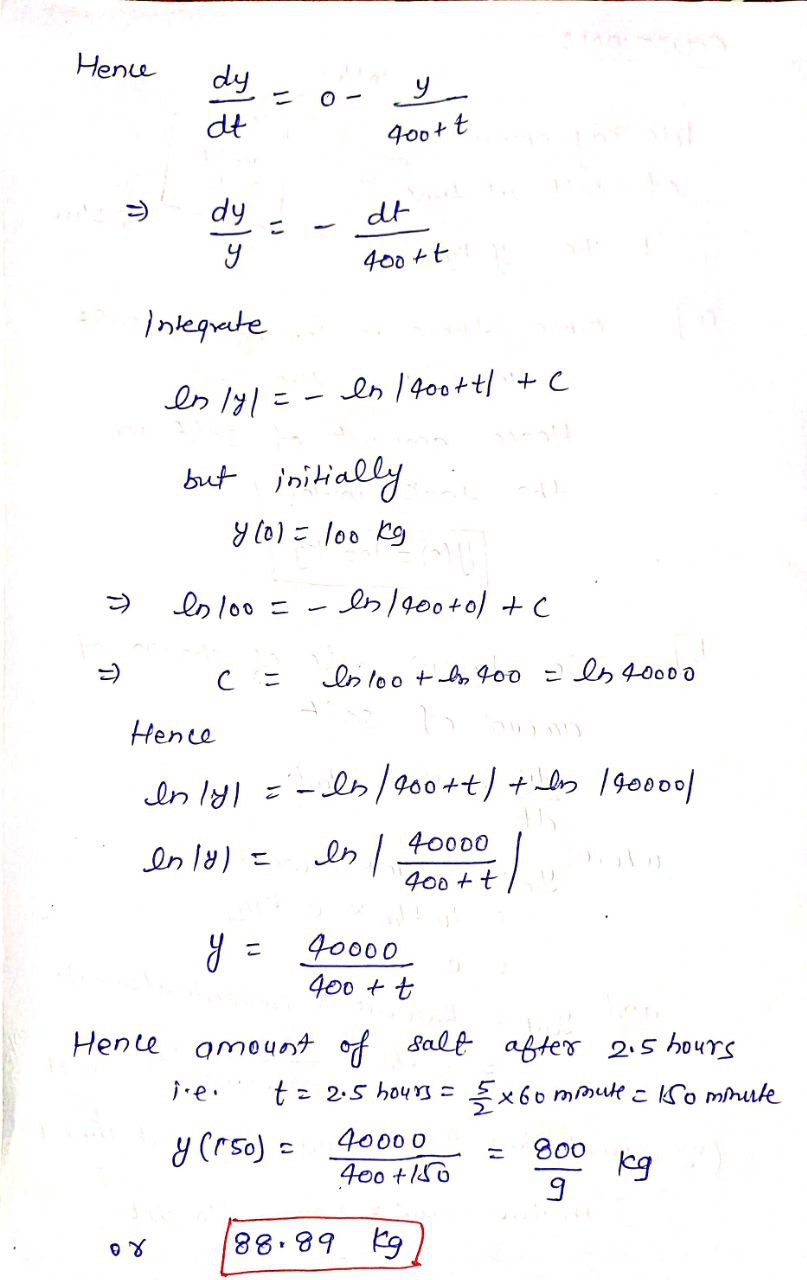 Hence dy/dt = 0 - y/(400+t)
⇒ dy/y = - dt/(400+t)
Integrate
ln |y| = - ln |400+t| + C
but initially
y(0) = 100 kg
⇒ ln 100 = - ln |400+0| + C
⇒ C = ln 100 + ln 400 = ln 40000
Hence
ln |y| = - ln |400+t| + ln |40000|
ln |y| = ln | 40000/(400+t) |
y = 40000/(400+t)
Hence amount of salt after 2.5 hours
i.e. t = 2.5 hours = 5/2 × 60 minute = 150 minute
y(150) = 40000/(400+150) = 800/9 kg
or 88.89 kg